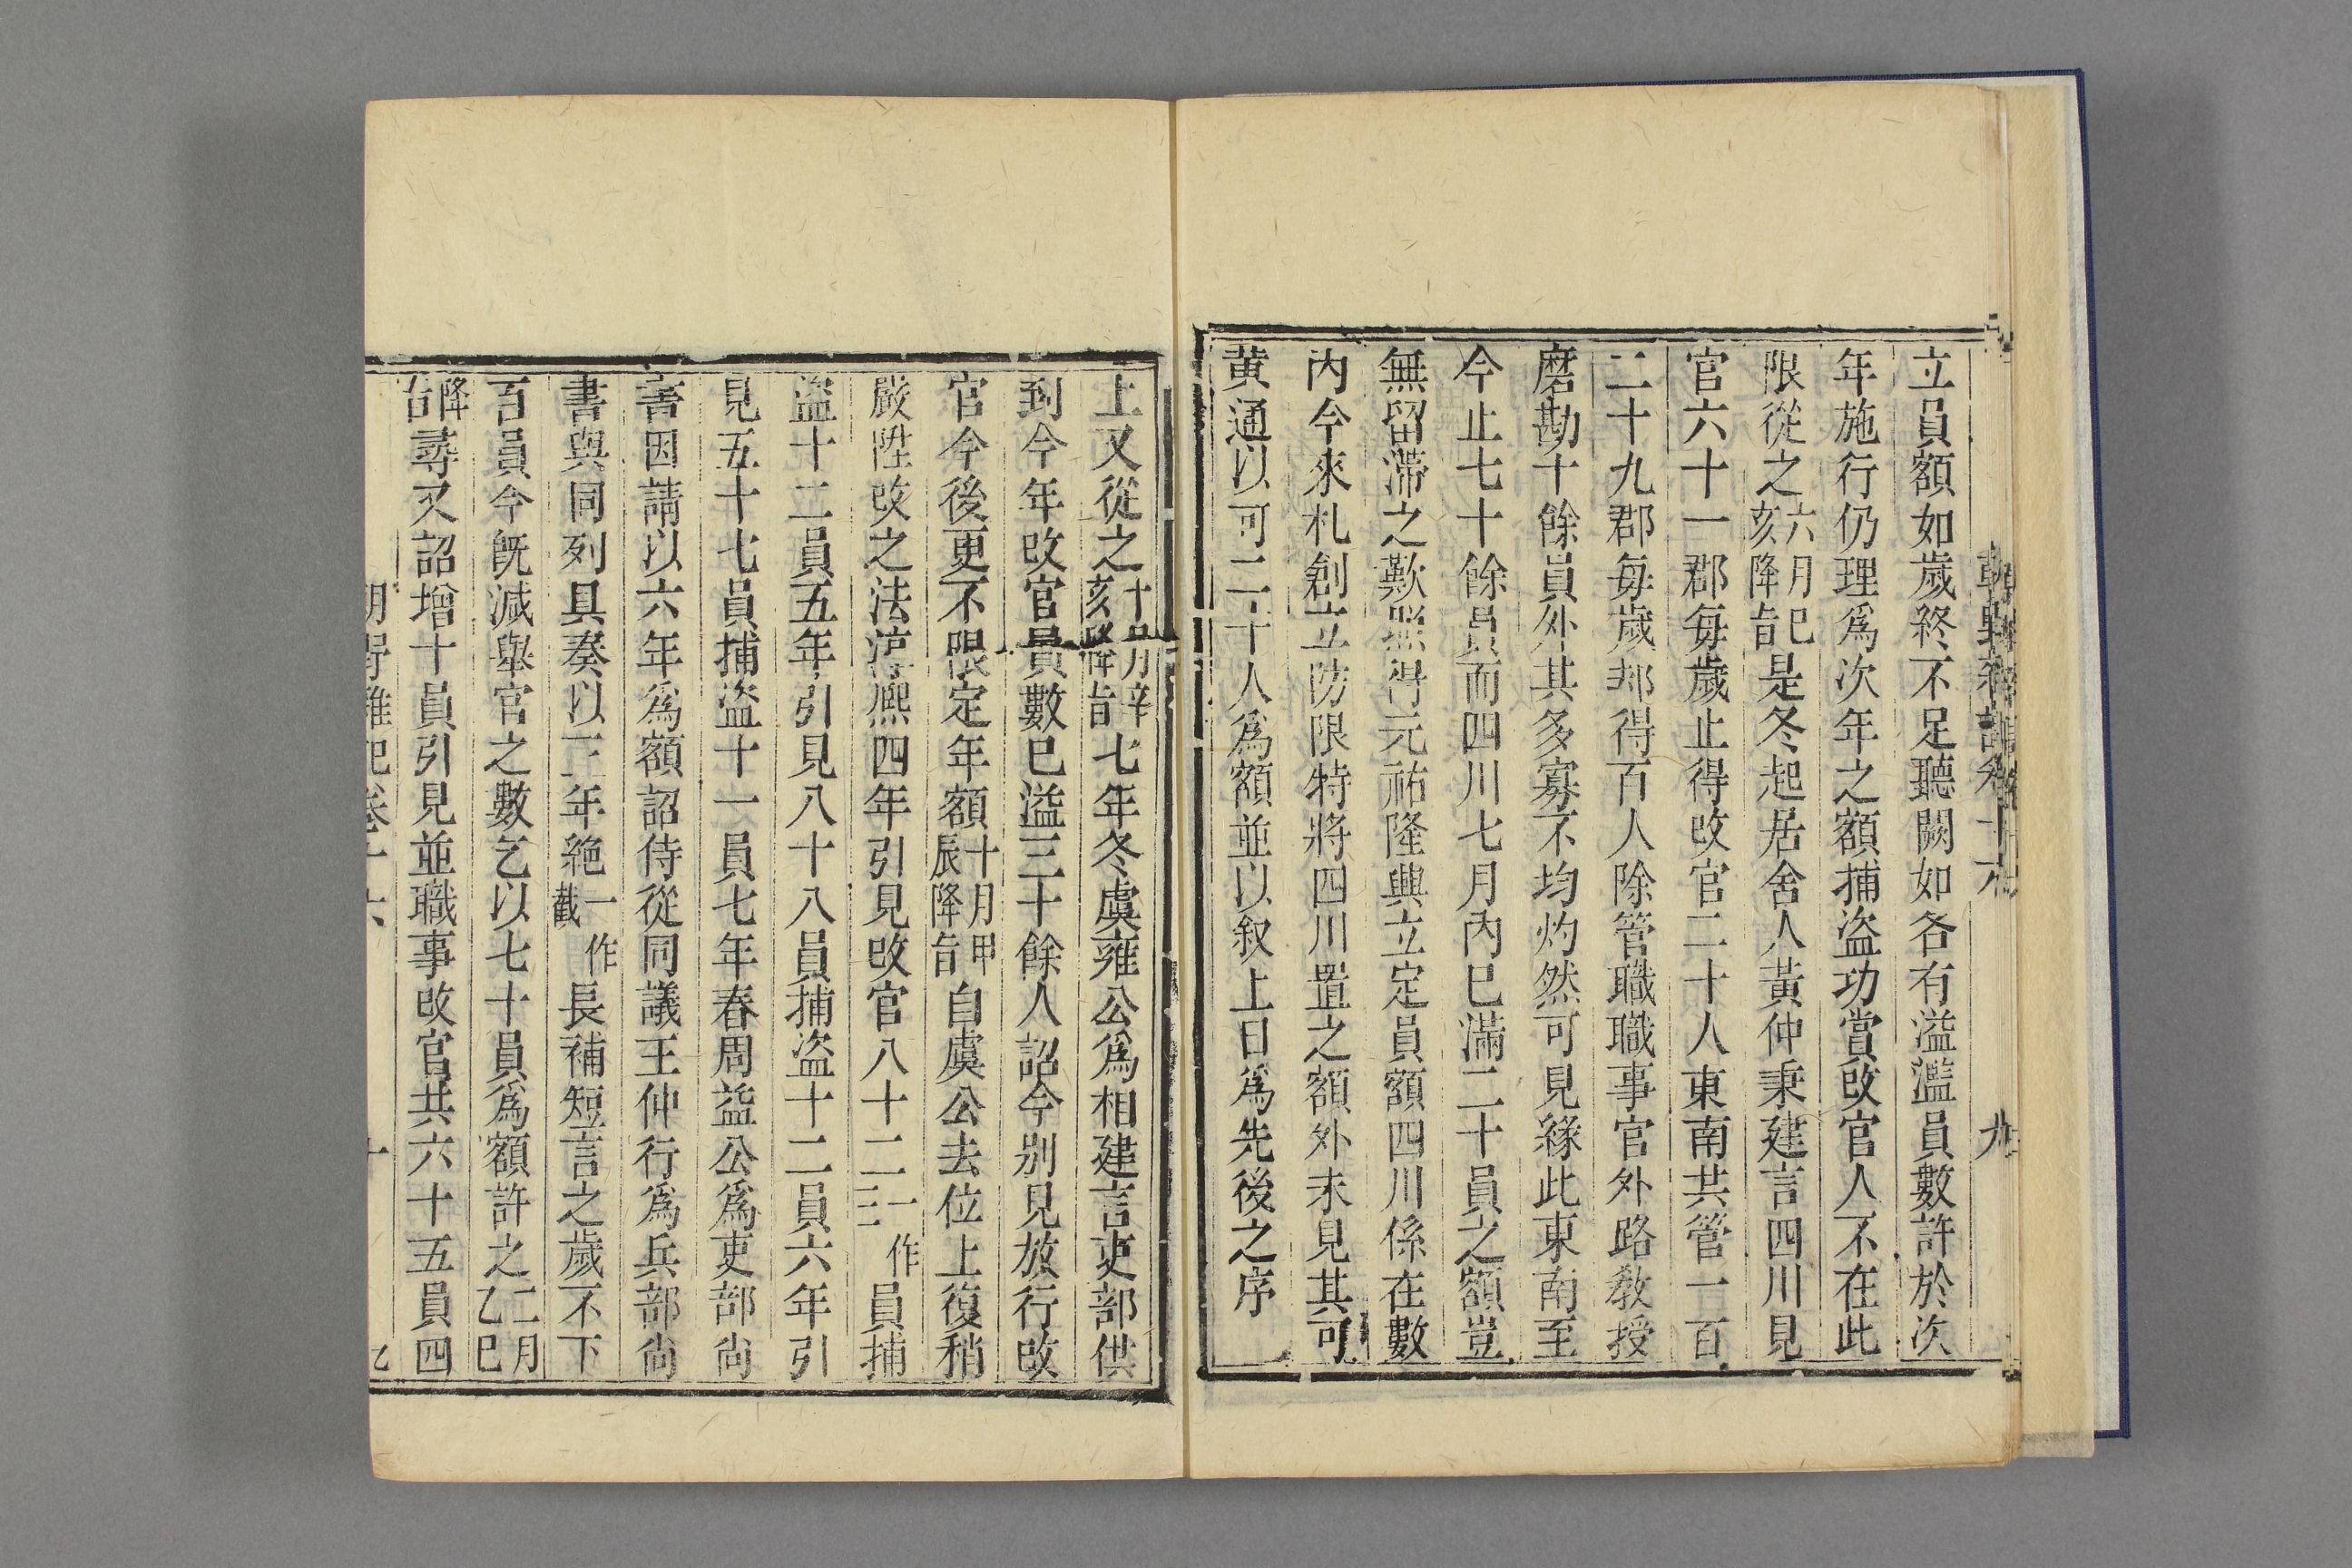 立員額如歲終不足聽闕如各有溢濫員數許於次
年施行仍理爲次年之額捕盗功賞改官人不在此
限從之六月巳亥降旨是冬起居舍人黃仲秉建言四川見
官六十一郡每歲止得改官二十人東南共管一百
二十九郡每歲却得百人除管職職事官外路教授
磨勘十餘員外其多寡不均灼然可見緣此東南至
今止七十餘員而四川七月內巳滿二十員之額豈
無留滯之歎照得元祐隆興立定員額四川係在數
內今來札創立防限特將四川置之額外未見其可
黄通以可二十人爲額並以叙上日爲先後之序
上又從之十月辛亥降旨七年冬虞雍公爲相建言吏部供
到今年改官員數巳溢三十餘人詔今别見放行改
官今後更不限定年額十月甲辰降旨自虞公去位上復稍
嚴陞改之法淳熙四年引見改官八十二一作三員捕
盗十二員五年引見八十八員捕盗十二員六年引
見五十七員捕盗十一員七年春周益公爲吏部尚
書因請以六年爲額詔侍從同議王仲行爲兵部尚
書與同列具奏以三年絶一作截長補短言之歲不下
百員今旣減舉官之數乞以七十員爲額許之二月乙巳
降旨尋又詔增十員引見並職事改官共六十五員四